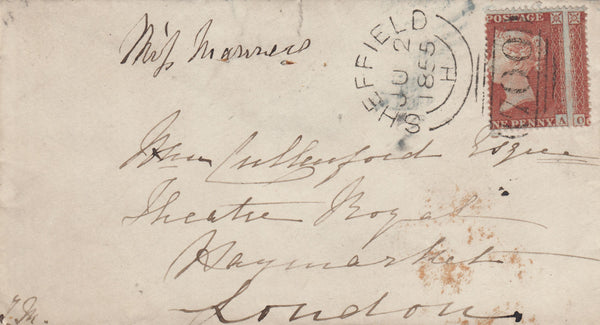 Miss Manners
SHEFFIELD
JU 2
1855
H
POSTAGE
NE PENNY
A
Wm Cullenford Esqre
Theatre Royal
Haymarket
London